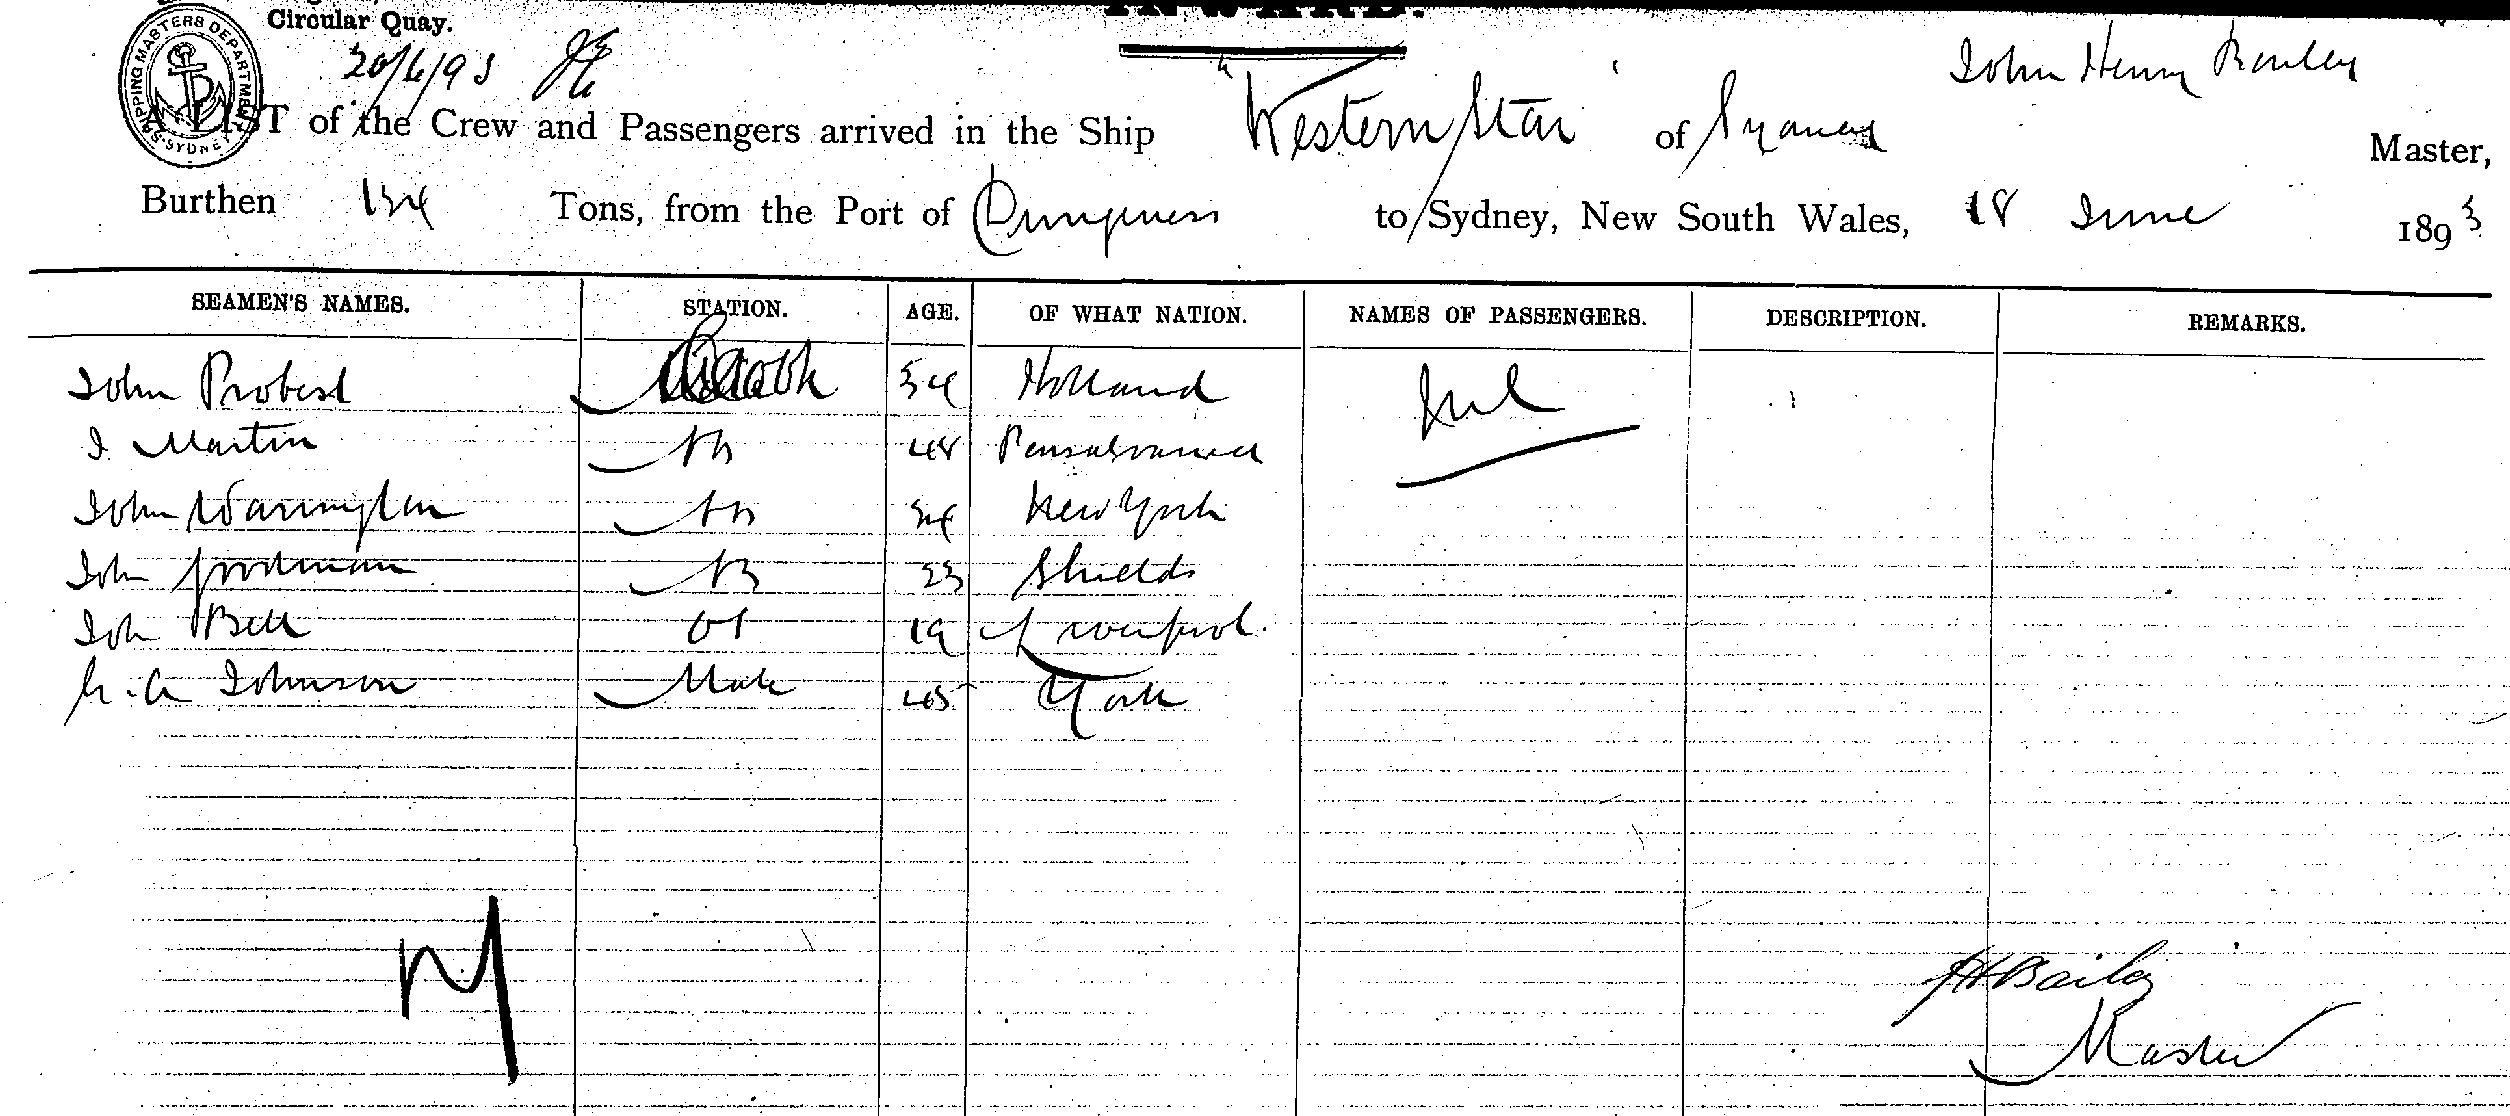 INWARD.
Circular Quay.
SHIPPING MASTERS DEPARTMENT SYDNEY
20/6/93
John Henry Bailey
A LIST of the Crew and Passengers arrived in the Ship "Western Star" of Sydney Master,
Burthen 134 Tons, from the Port of Dungeness to Sydney, New South Wales, 18 June 1893
SEAMEN'S NAMES. STATION. AGE. OF WHAT NATION. NAMES OF PASSENGERS. DESCRIPTION. REMARKS.
John Probert Cook 34 Holland Nil
J Martin AB 48
John Warrington AB 34 New York
John AB 23 Shields
Joh Bell OS 19 Liverpool.
Johnson Mate 45 York
JH Bailey
Master